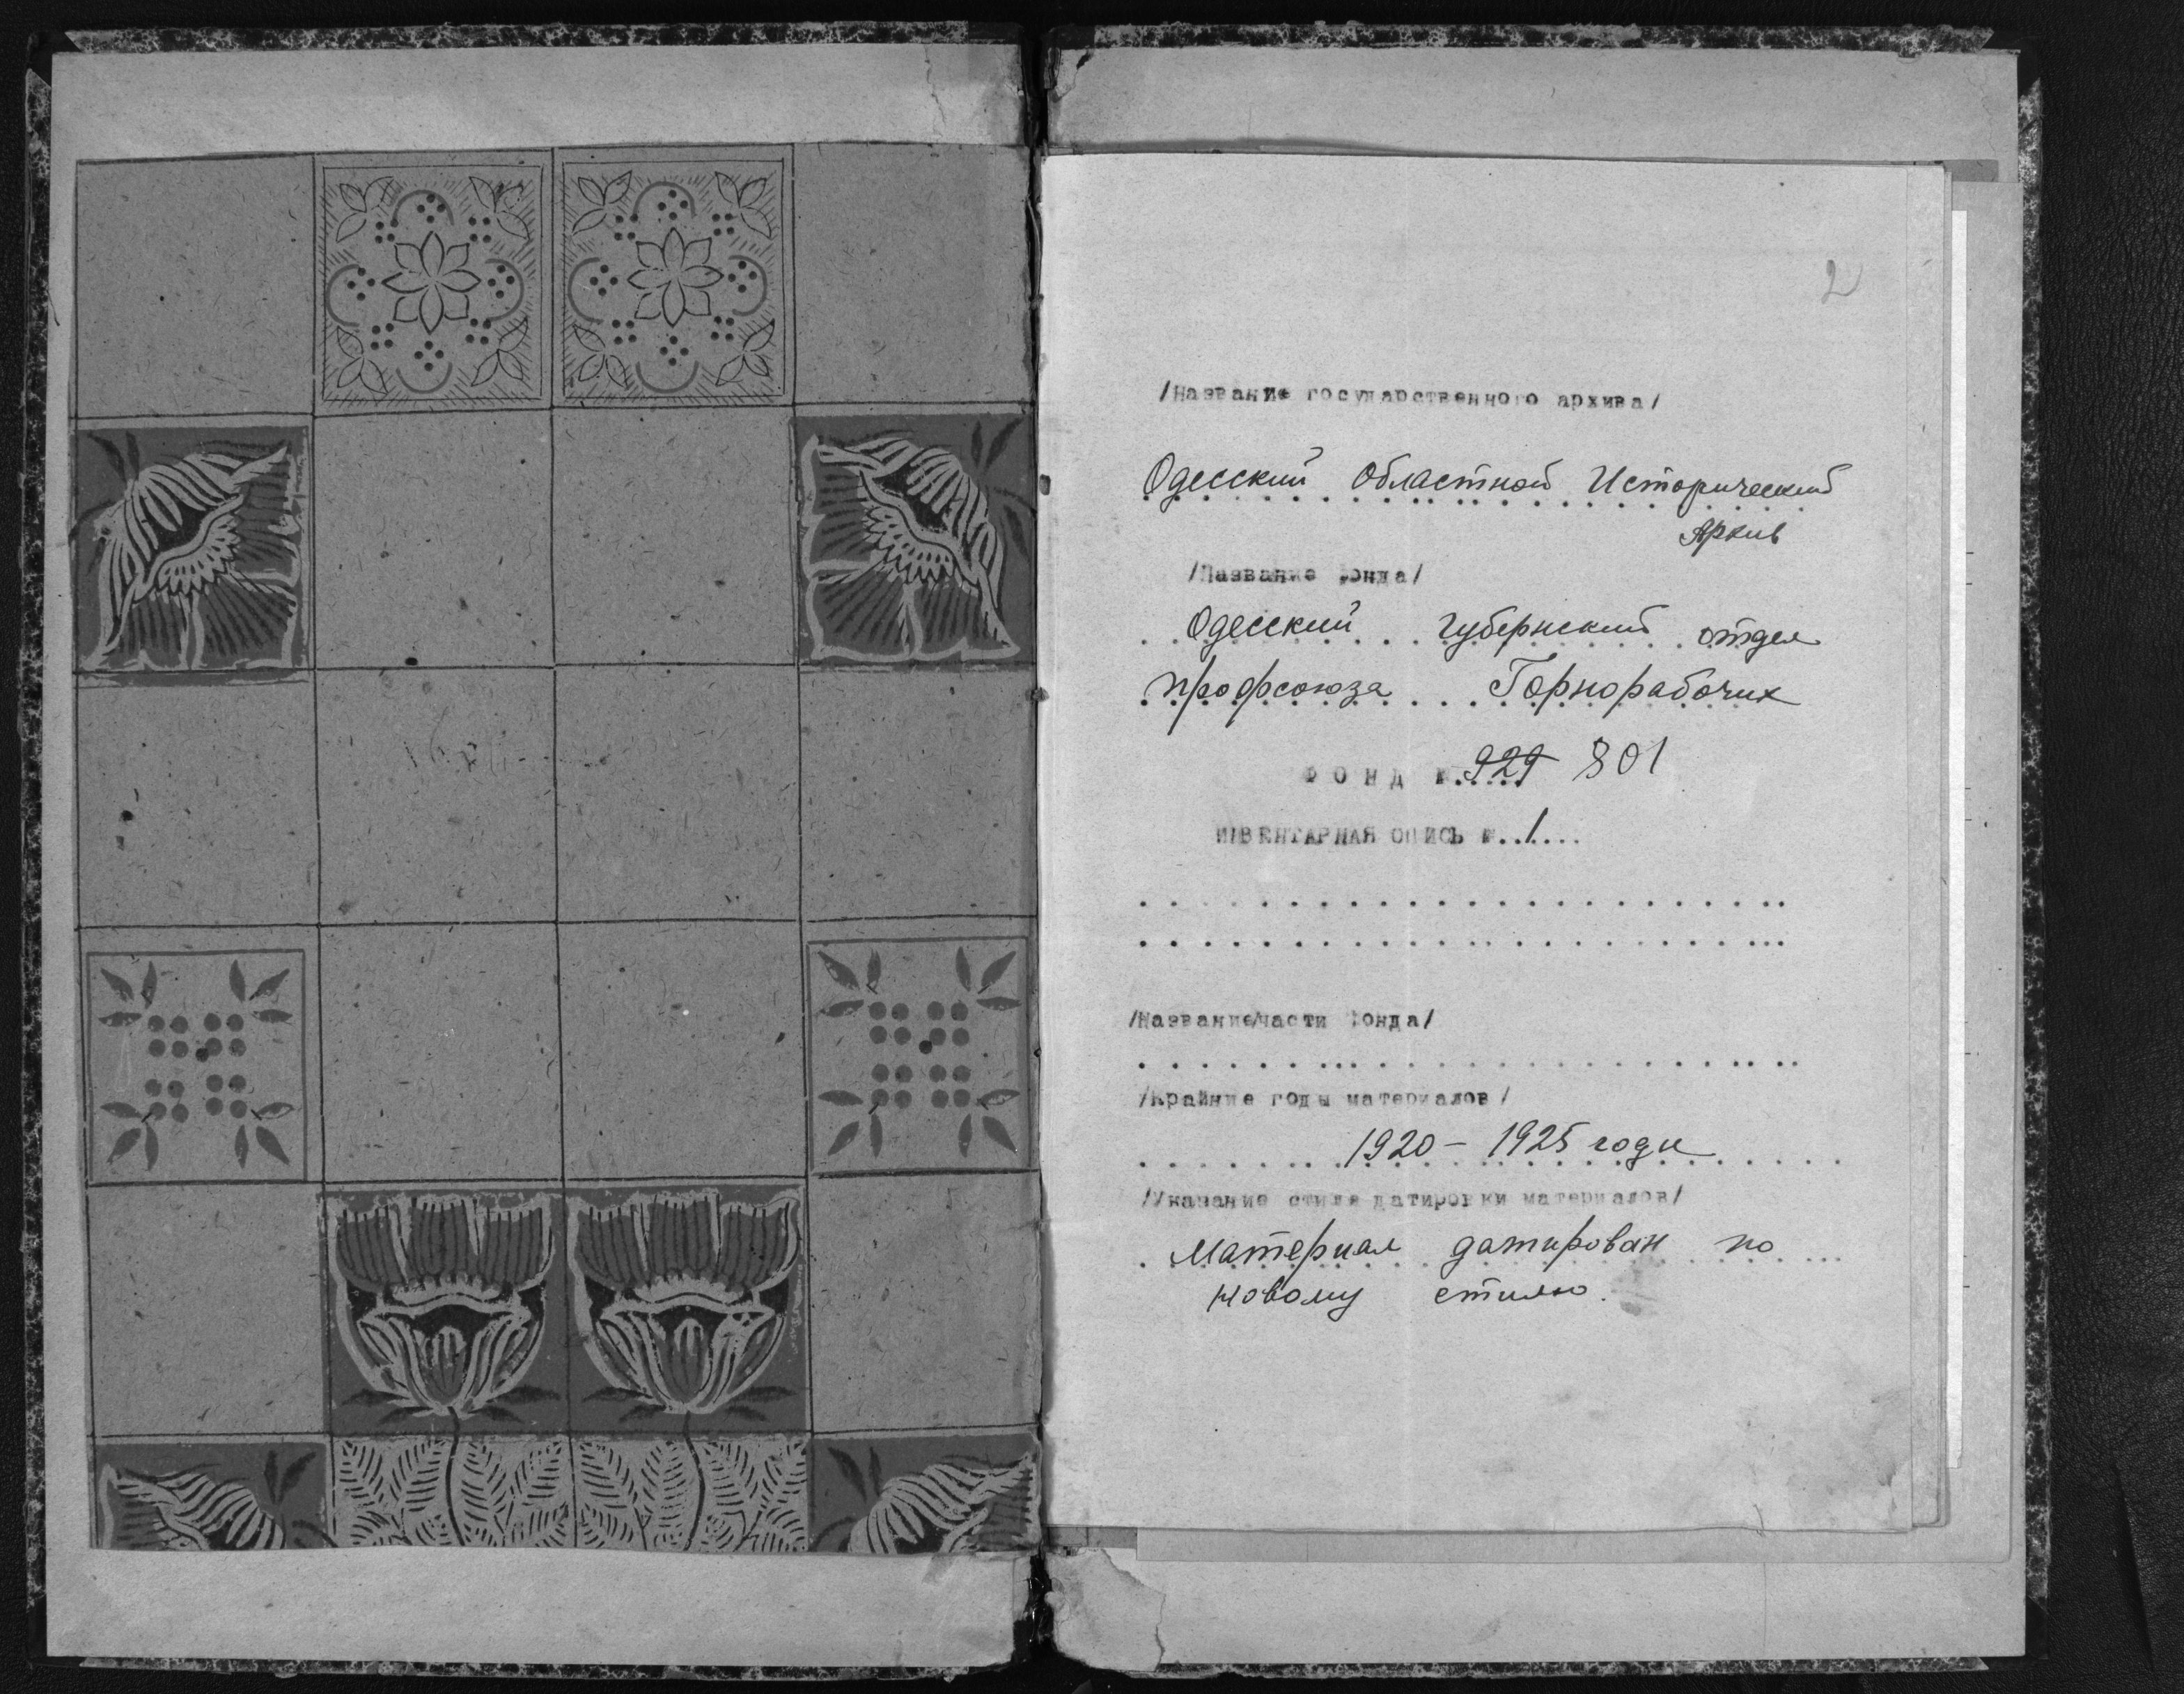 2
/Название государственного архива/
Одесский Областной Исторический
Архив
/Название фонда/
Одесский Губернский отдел
профсоюза Горнорабочих
ФОНД №.929 801
ИНВЕНТАРНАЯ ОПИСЬ №..1...
/Название/части фонда/
/Крайние годы материалов/
1920 – 1925 годы
/Указание стиля датировки материалов/
Материал датирован по
новому стилю.